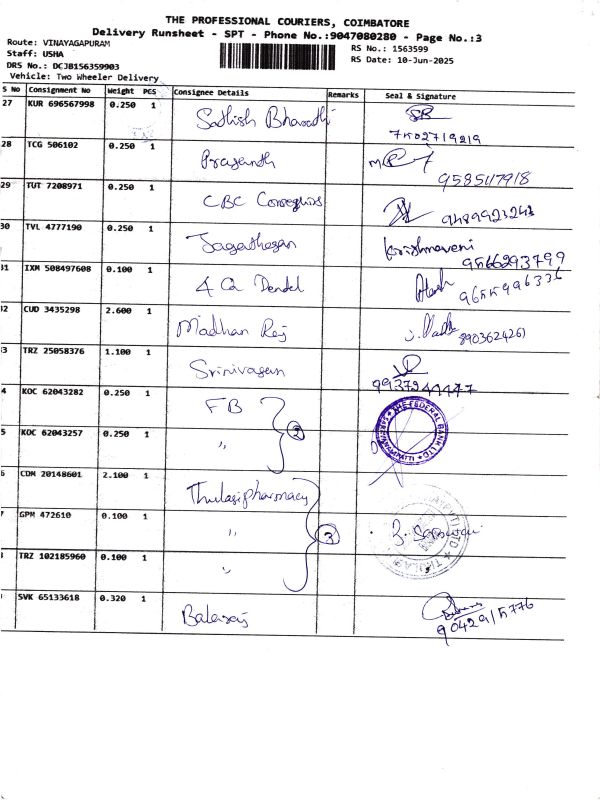 THE PROFESSIONAL COURIERS, COIMBATORE
Delivery Runsheet - SPT - Phone No.:9047080280 - Page No.:3
Route: VINAYAGAPURAM
Staff: USHA
DRS No.: DCJB156359903
Vehicle: Two Wheeler Delivery
RS No.: 1563599
RS Date: 10-Jun-2025
S No Consignment No Weight PCS Consignee Details Remarks Seal & Signature
27 KUR 696567998 0.250 1 Sathish Bharathi
7502719219
28 TCG 506102 0.250 1 Prasanth
9585117918
29 TUT 7208971 0.250 1 CBC
9489923243
30 TVL 4777190 0.250 1 Jagathesan Krishnaveni
9566293799
31 IXM 508497608 0.100 1 4 Q Dendel
9655996336
32 CUD 3435298 2.600 1 Madhan Raj
8903624261
3 TRZ 25058376 1.100 1 Srinivasan
4 KOC 62043282 0.250 1 FB
2
THE FEDERAL BANK LTD
5 KOC 62043257 0.250 1 "
6 CDM 20148601 2.100 1 Thulasi pharmacy
7 GPM 472610 0.100 1 "
3
TRZ 102185960 0.100 1 "
SVK 65133618 0.320 1 Balaraj
9042915776